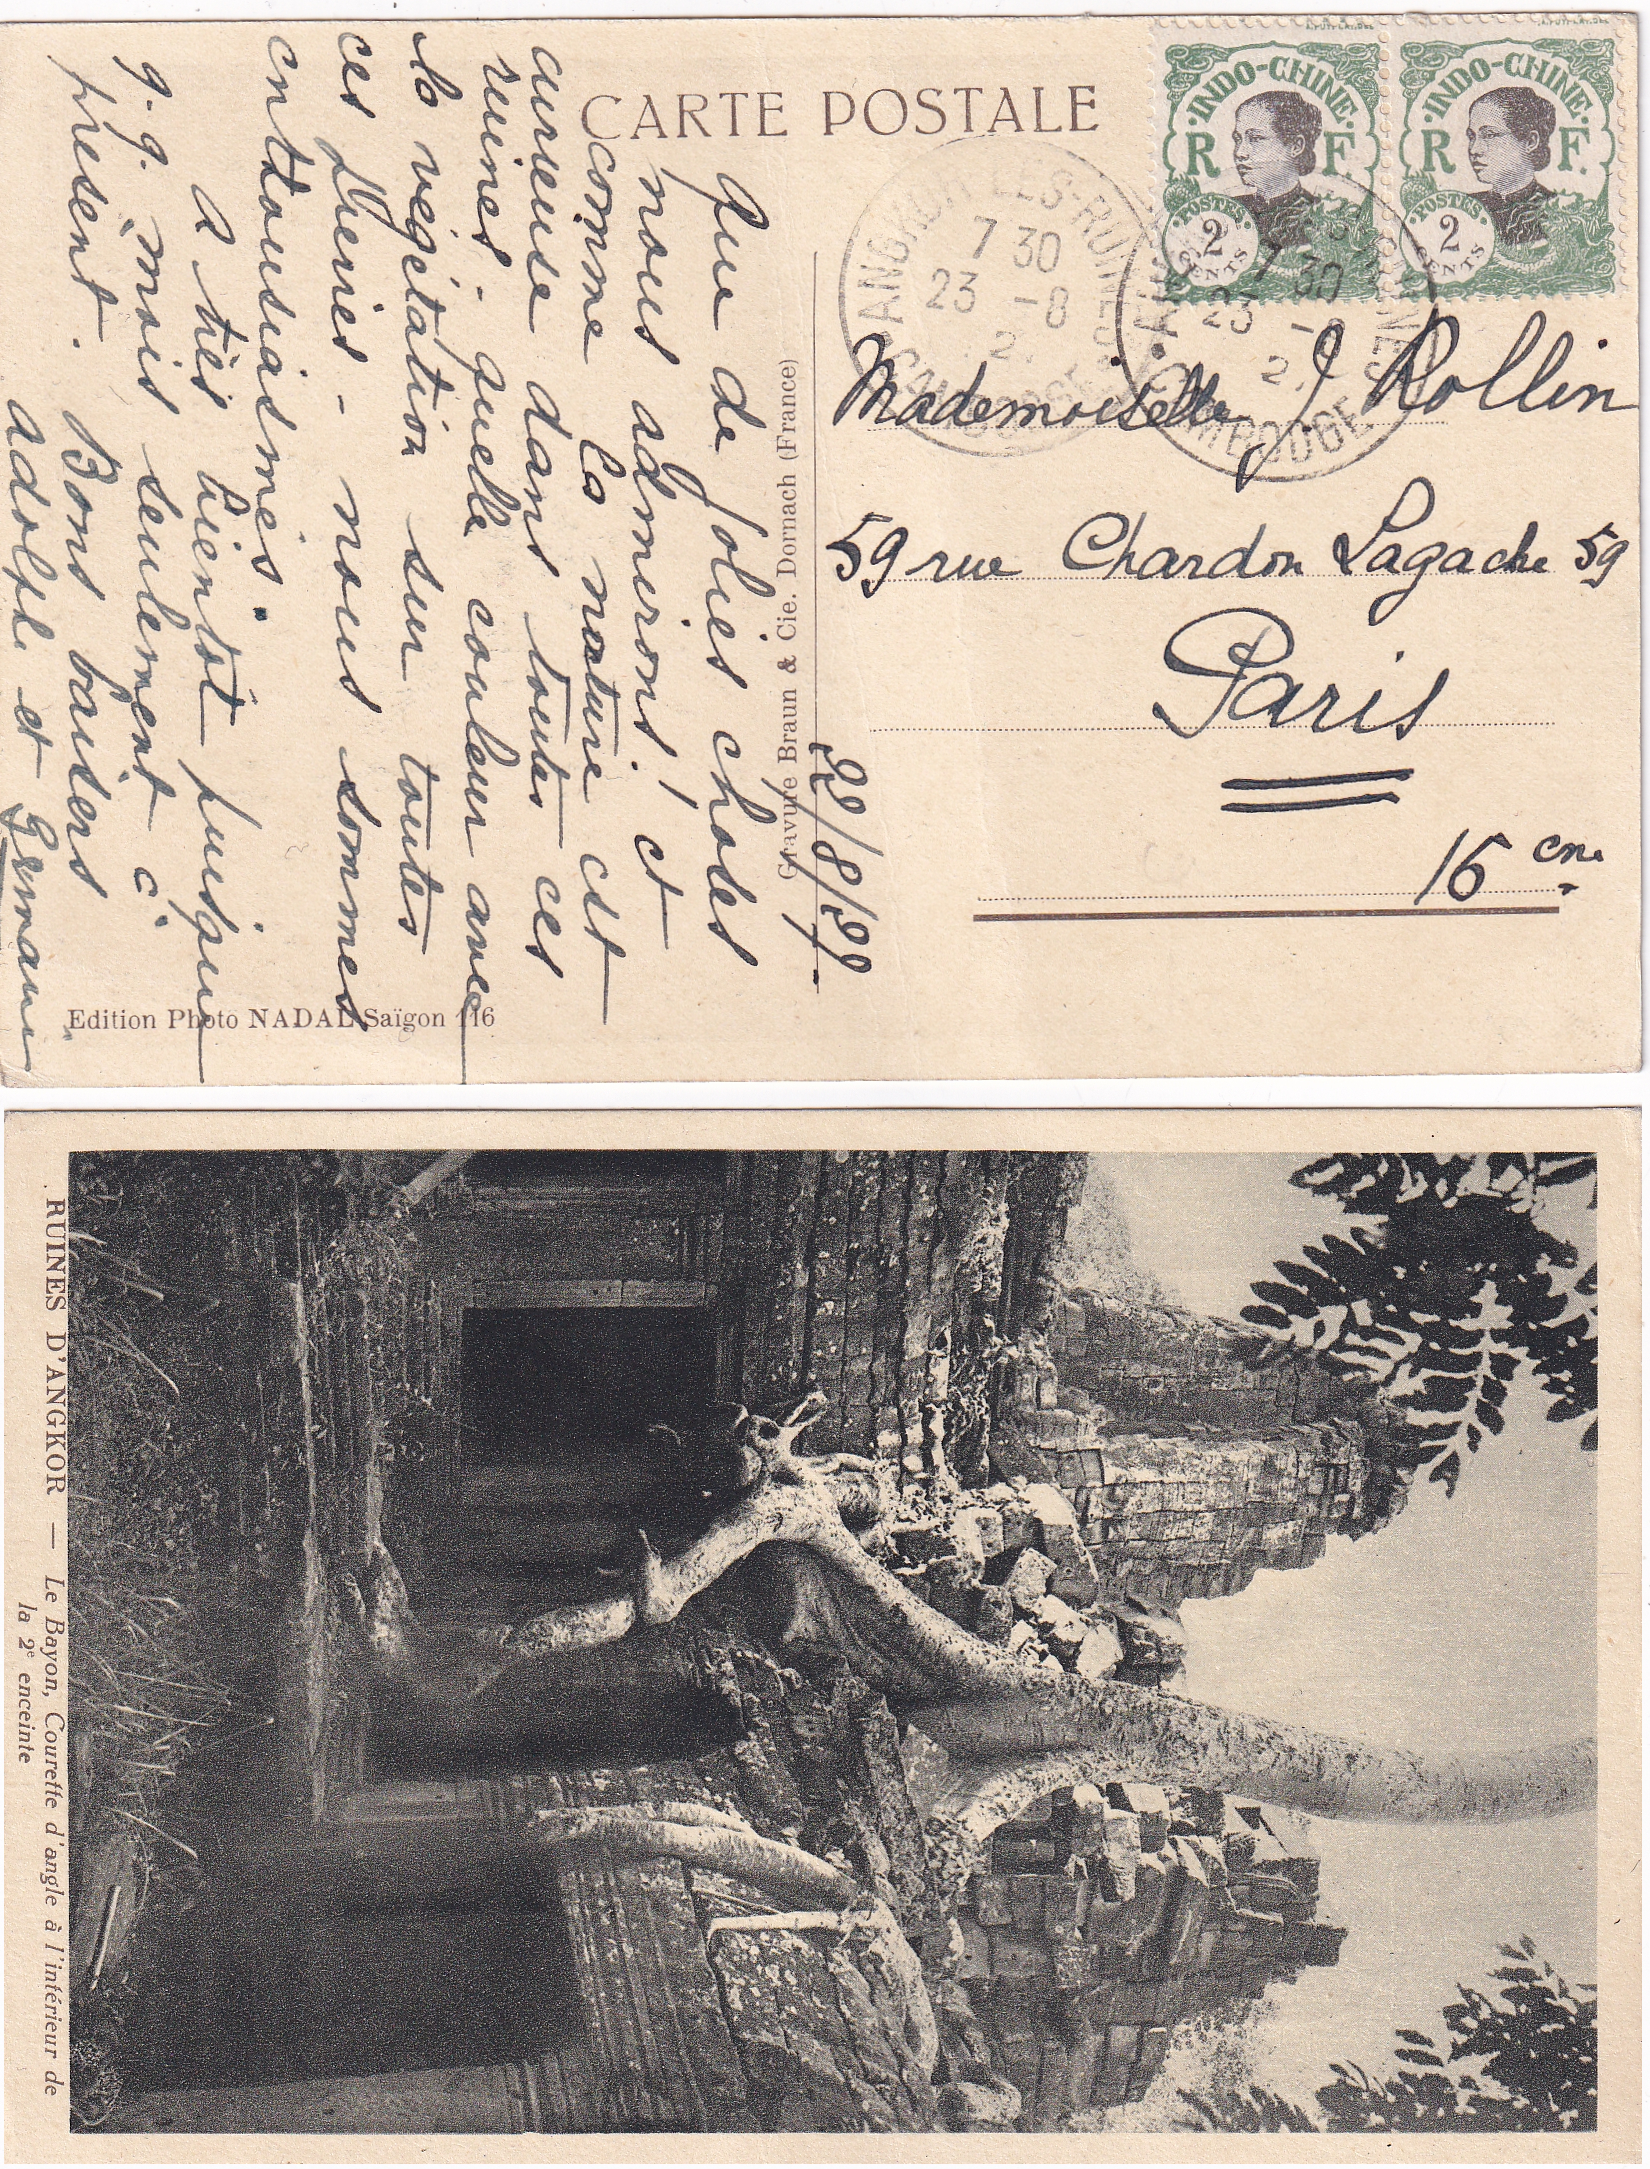 CARTE POSTALE
INDO-CHINE
R F.
POSTES
2
CENTS
INDO-CHINE
R F.
POSTES
2
CENTS
ANGKOR-LES-RUINES
7 30
23 -8
2
CAMBODGE
7 30
23
2
CAMBODGE
Mademoiselle J. Rollin
59 rue Chardon Lagache 59
Paris
16 eme
22/8/22
Que de jolies choses
nous admirons! et
comme la nature est
curieuse dans toutes ces
ruines - quelle couleur avec
la végétation sur toutes
ces pierres - nous sommes
entousiasmés.
A très bientôt puisque
q.q. mois seulement à
présent. Bons baisers
Adolphe et Germaine
Gravure Braun & Cie. Dornach (France)
Edition Photo NADAL Saïgon 116
RUINES D'ANGKOR — Le Bayon, Courette d'angle à l'intérieur de
la 2e enceinte